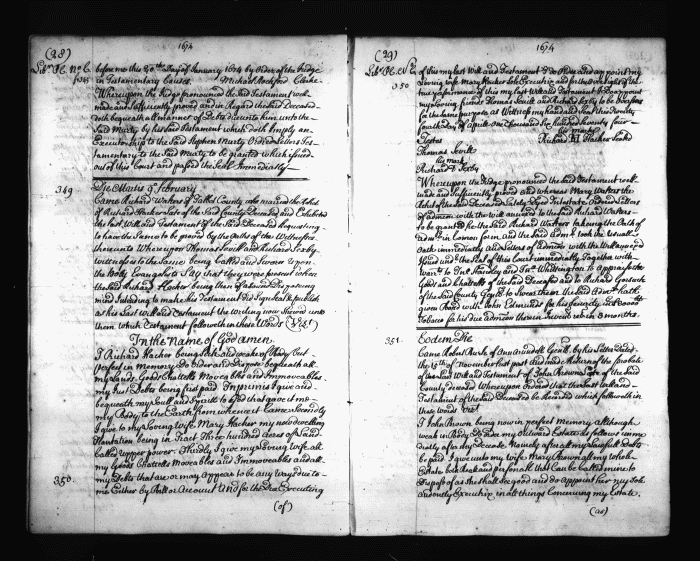 (28)
1674
before me this 30th Day of January 1674 by Order of the Judge
in Testamentary Causes Michael Rochford Clerke
Whereupon the Judge pronounced the said Testament well
made and sufficiently proved and in Regard the said Deceased
doth bequeath all manner of Debts due unto him unto the
Said Murty by his said Testament which doth Imply an
Executorship to the Said Stephen Murty Ordered Letters Tes-
tamentary to the Said Murty to be granted which issued
out of this Court and passed the Seal Immediately
349 Die Martis 9 February
Came Richard Warters of Talbot County who married the
of Richard Hacker late of the said County Deceased and Exhibited
the last Will and Testament of the Said Deceased Requesting
to have the Same to be proved by the Oaths of the Wittnesses
thereunto Whereupon Thomas Scutt and Richard Sexby
wittnesses to the Same being Called and Sworn upon
the Holy Evangelists Say that they were present when
the said Richard Hacker being then of a Sound Disposeing
mind Intending to make his Testament Did Signe Seal & publish
as his Last Will and Testament the Writing now Shewed unto
them which Testament followeth in these Words (Vizt)
In the Name of God amen
I Richard Hacker being Sick and weake of Body but
perfect in Memory Do Order and Dispose bequeath all
my Lands Goods Chattells Moveables and Immoveables
my Just Debts being first paid Imprimis I give and
bequeath my Soull and Spiritt to God that gave it me
my Body to the Earth from whence it Came Secondly
I give to my Loving Wife Mary Hacker my now dwelling
Plantation being in Tract Three hundred acres of Land
Called upper power Thirdly I give my Loving Wife all
my Goods Chattells Moveables and Immoveables and all
my Debts that are or may appear to be any Ways due to
350. me Either by Bill or Account And for the True Executing
(of)
(29)
1674
350 of this my Last Will and Testament I do Make and appoint my
Loving Wife Mary Hacker Sole Executrix and for the oversight of the
true performance of this my last Will and Testament I Do appoint
my loving friends Thomas Scutt and Richard Sexby to be Overseers
for the same purpose as Wittness my hand and Seal this Twenty
fourth Day of Aprill one Thousand Six hundred Seventy four
Testes his mark
Thomas Scutt Richard H Hacker Sealed
his mark
Richard Sexby
Whereupon the Judge pronounced the said Testament well
made and Sufficiently proved and whereas Mary Warters the
of the said Deceased Lately Dyed Intestate Ordered Letters
of Admcon with the will annexed to the said Richard Warters
to be granted he the Said Richard Warters takeing the Oath of
Admr in Comon form, and the Said Admr took the Usuall
Oath immediately and Letters of Admcon with the Will annexed
Issued under the Seal of this Court immediately Togeather with
Warrt to Jno Stanley and Jno Whittington to appraise the
Goods and Chattells of the Said Deceased and to Richard
of the said County Gent to Swear them the Said Admr hath
given Bond with John Edmundes for his Security in
Tobacco for his due admcon thereon Inventr retd in 3 months.
351. Eodem Die
Came Robert Burle of Ann Arundell Gent by his Letter Dated
the 15th of November last past and made Return of the probate
of the Last Will and Testament of John Brown Late of the Said
County deceased Whereupon Ordered that the Last Will and
Testament of the said Deceased be Recorded which followeth in
these words Vizt
I John Brown being now in perfect Memory although
weak in Body Do Order my outward Estate as follows imme
diately after my Decease Namely after all my Lawfull debts
be paid I give unto my Wife Mary Brown all my whole
Estate both Reall and personall that Can be Called mine to
Dispose of as She Shall See good and do appoint her my Sole
and only Executrix in all things Concerning my Estate,
(as)